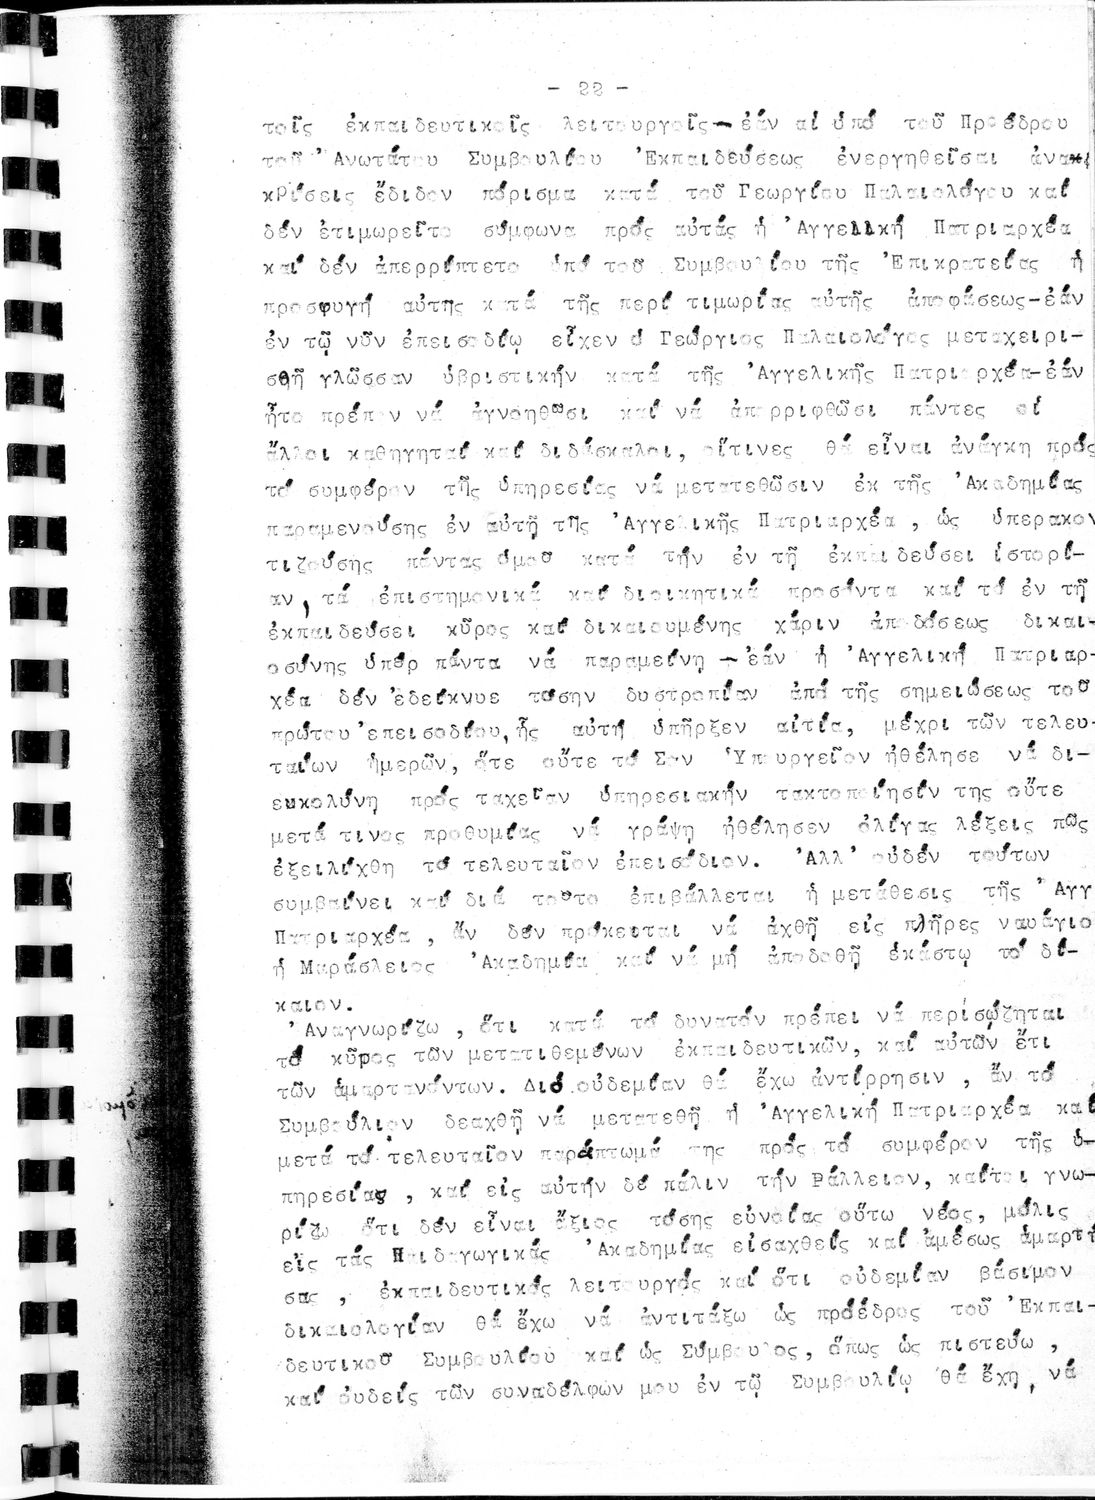 - 22 -
τοῖς ἐκπαιδευτικοῖς λειτουργοῖς—ἐάν αἱ ὑπό τοῦ Προέδρου
τοῦ 'Ανωτάτου Συμβουλίου 'Εκπαιδεύσεως ἐνεργηθεῖσαι ἀνα-
κρίσεις ἔδιδον πόρισμα κατά τοῦ Γεωργίου Παλαιολόγου καί
δέν ἐτιμωρεῖτο σύμφωνα πρός αὐτάς ἡ 'Αγγελλκή Πατριαρχέα
καί δέν ἀπερρίπτετο ὑπό τοῦ Συμβουλίου τῆς 'Επικρατείας ἡ
προσφυγή αὐτης κατά τῆς περί τιμωρίας αὐτῆς ἀποφάσεως-ἐάν
ἐν τῷ νῦν ἐπεισοδίῳ εἶχεν ὁ Γεώργιος Παλαιολόγος μεταχειρι-
σθῆ γλῶσσαν ὑβριστικήν κατά τῆς 'Αγγελικῆς Πατριαρχέα-ἐάν
ἦτο πρέπον νά ἀγνοηθῶσι καί νά ἀπορριφθῶσι πάντες οἱ
ἄλλοι καθηγηταί καί διδάσκαλοι, οἵτινες θά εἶναι ἀνάγκη πρός
τό συμφέρον τῆς ὑπηρεσίας νά μετατεθῶσιν ἐκ τῆς 'Ακαδημίας
παραμενούσης ἐν αὐτῇ τῆς 'Αγγελικῆς Πατριαρχέα , ὡς ὑπερακον
τιζούσης πάντας ὁμοῦ κατά τήν ἐν τῇ ἐκπαιδεύσει ἱστορί-
αν, τά ἐπιστημονικά καί διοικητικά προσόντα καί τό ἐν τῇ
ἐκπαιδεύσει κῦρος καί δικαιουμένης χάριν ἀποδόσεως δικαι-
οσύνης ὑπέρ πάντα νά παραμείνῃ — ἐάν ἡ 'Αγγελική Πατριαρ-
χέα δέν 'εδείκνυε τόσην δυστροπίαν ἀπό τῆς σημειώσεως τοῦ
πρώτου 'επεισοδίου, ἧς αὐτή ὑπῆρξεν αἰτία, μέχρι τῶν τελευ-
ταίων ἡμερῶν, ὅτε οὔτε τό Σον 'Υπουργεῖον ἠθέλησε νά δι-
ευκολύνῃ πρός ταχεῖαν ὑπηρεσιακήν τακτοποίησίν της οὔτε
μετά τινος προθυμίας νά γράψῃ ἠθέλησεν ὀλίγας λέξεις πῶς
ἐξειλίχθη τό τελευταῖον ἐπεισόδιον. 'Αλλ' οὐδέν τούτων
συμβαίνει καί διά τοῦτο ἐπιβάλλεται ἡ μετάθεσις τῆς 'Αγγ
Πατριαρχέα , ἄν δέν πρόκειται νά ἀχθῇ εἰς πλῆρες ναυάγιο
ἡ Μαράσλειος 'Ακαδημία καί νά μή ἀποδοθῇ ἑκάστῳ τό δί-
καιον.
'Αναγνωρίζω , ὅτι κατά τό δυνατόν πρέπει νά περισῴζηται
τό κῦρος τῶν μετατιθεμένων ἐκπαιδευτικῶν, καί αὐτῶν ἔτι
τῶν ἁμαρτανόντων. Διό οὐδεμίαν θά ἔχω ἀντίρρησιν , ἄν τό
Συμβούλιον δεαχθῇ νά μετατεθῇ ἡ 'Αγγελική Πατριαρχέα καί
μετά τό τελευταῖον παράπτωμά της πρός τό συμφέρον τῆς ὑ-
πηρεσίας , καί εἰς αὐτήν δέ πάλιν τήν Ράλλειον, καίτοι γνω-
ρίζω ὅτι δέν εἶναι ἄξιος τόσης εὐνοίας οὕτω νέος, μόλις
εἰς τάς Παιδαγωγικάς 'Ακαδημίας εἰσαχθείς καί ἀμέσως ἁμαρτή
σας , ἐκπαιδευτικός λειτουργός καί ὅτι οὐδεμίαν βάσιμον
δικαιολογίαν θά ἔχω νά ἀντιτάξω ὡς πρόεδρος τοῦ 'Εκπαι-
δευτικοῦ Συμβουλίου καί ὡς Σύμβουλος, ὅπως ὡς πιστεύω ,
καί οὐδείς τῶν συναδέλφων μου ἐν τῷ Συμβουλίῳ θά ἔχῃ, νά